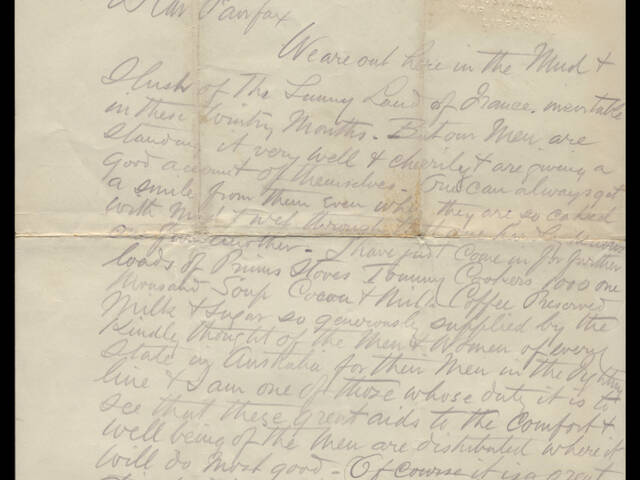 Dear Fairfax
We are out here in the Mud &
Slush of The Sunny Land of France. inevitable
in these Wintry Months. But our Men are
standing it very well & cheerily & are giving a
good account of themselves. One can always get
a smile from them even when they are so caked
with Mud & wet through that one
one from another. I have just come in for further
loads of Primus Stoves Tommy Cookers 1000 one
thousand Soup Cocoa & Milk Coffee Preserved
Milk & Sugar so generously supplied by the
kindly thought of the Men & Women of every
State in Australia for their Men in the fighting
line & I am one of those whose duty it is to
see that these great aids to the Comfort &
well being of the Men are distributed where it
will do most good. Of course it is a great